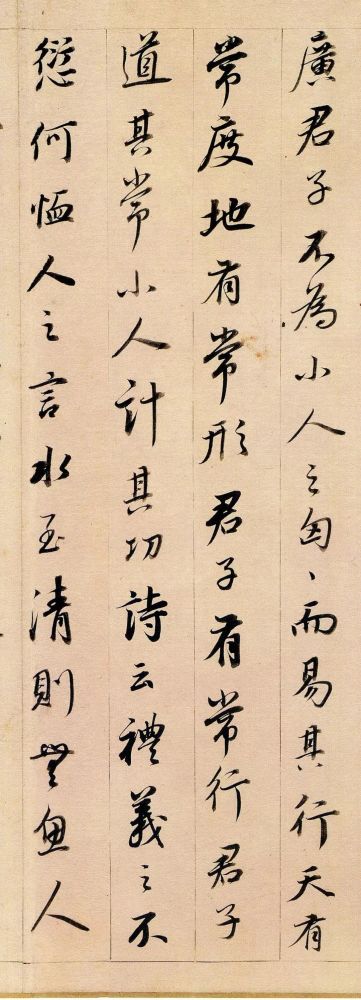 廣君子不為小人之匈〻而易其行天有
常度地有常形君子有常行君子
道其常小人計其功詩云禮義之不
愆何恤人之言水至清則無魚人